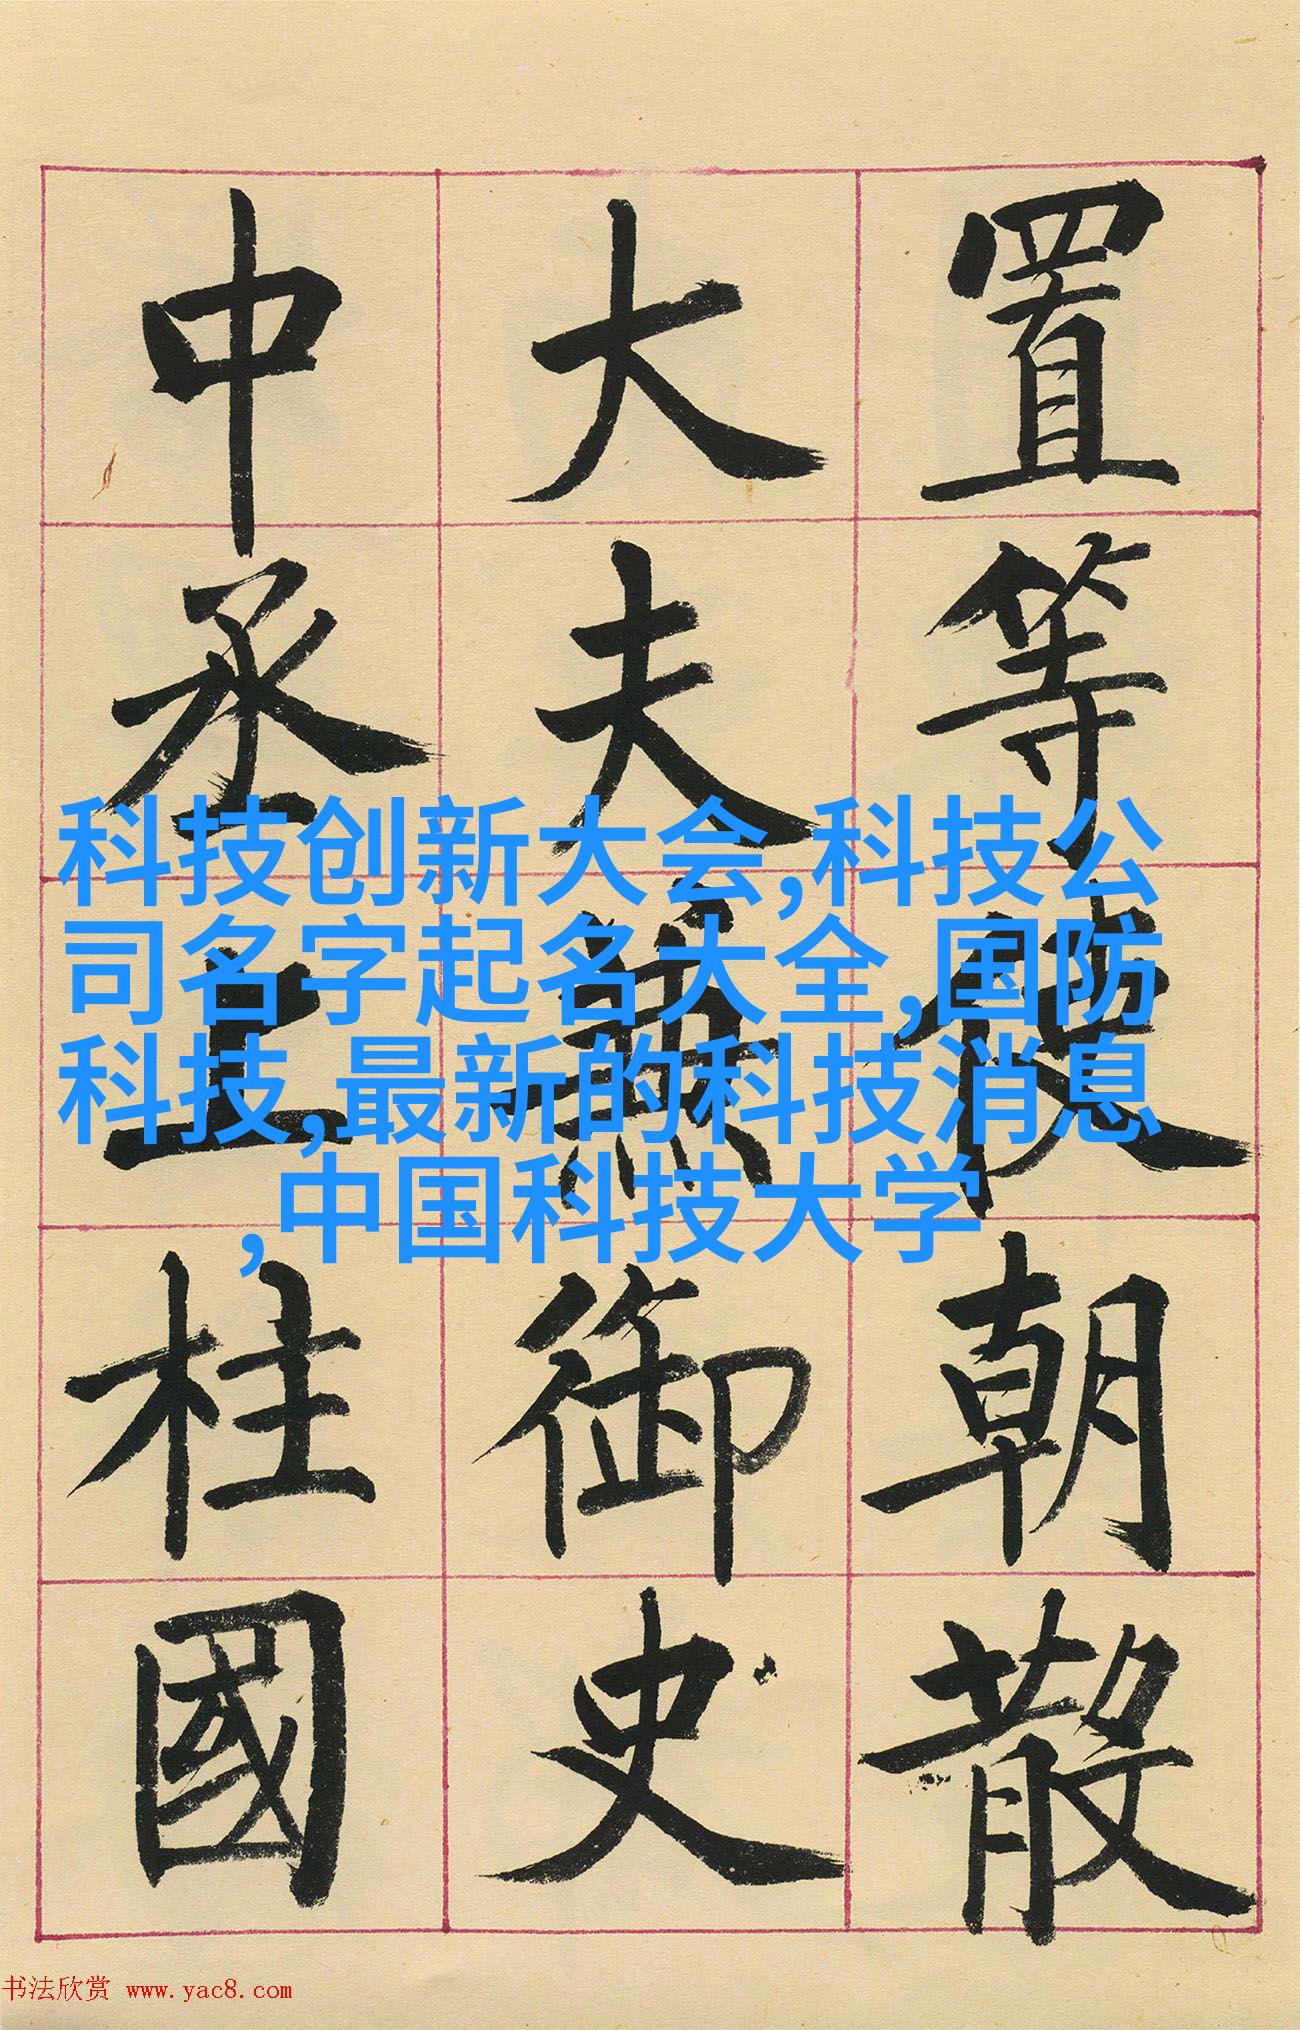 置等使朝散
大夫兼御史
中丞上柱國
科技创新大会,科技公
司名字起名大全,国防
科技,最新的科技消息
,中国科技大学
书法欣赏 www.yac8.com